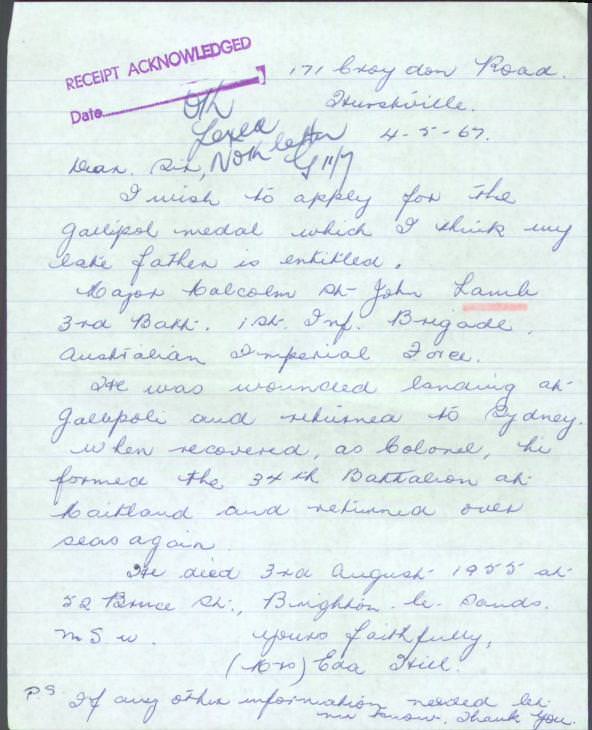 RECEIPT ACKNOWLEDGED
Date
171 Croydon Road.
Hurstville.
4-5-67.
Dear Sir,
I wish to apply for the
Gallipoli medal which I think my
late father is entitled.
Major Malcolm St John Lamb
3rd Batt. 1st. Inf. Brigade,
Australian Imperial Force.
He was wounded landing at
Gallipoli and returned to Sydney.
When recovered, as Colonel, he
formed the 34th Battalion at
Maitland and returned over
seas again.
He died 3rd August 1955 at
52 Bruce St., Brighton-le-Sands.
N S W.
Yours faithfully,
(Mrs) Eda Hill.
P.S. If any other information needed let
me know. Thank You.